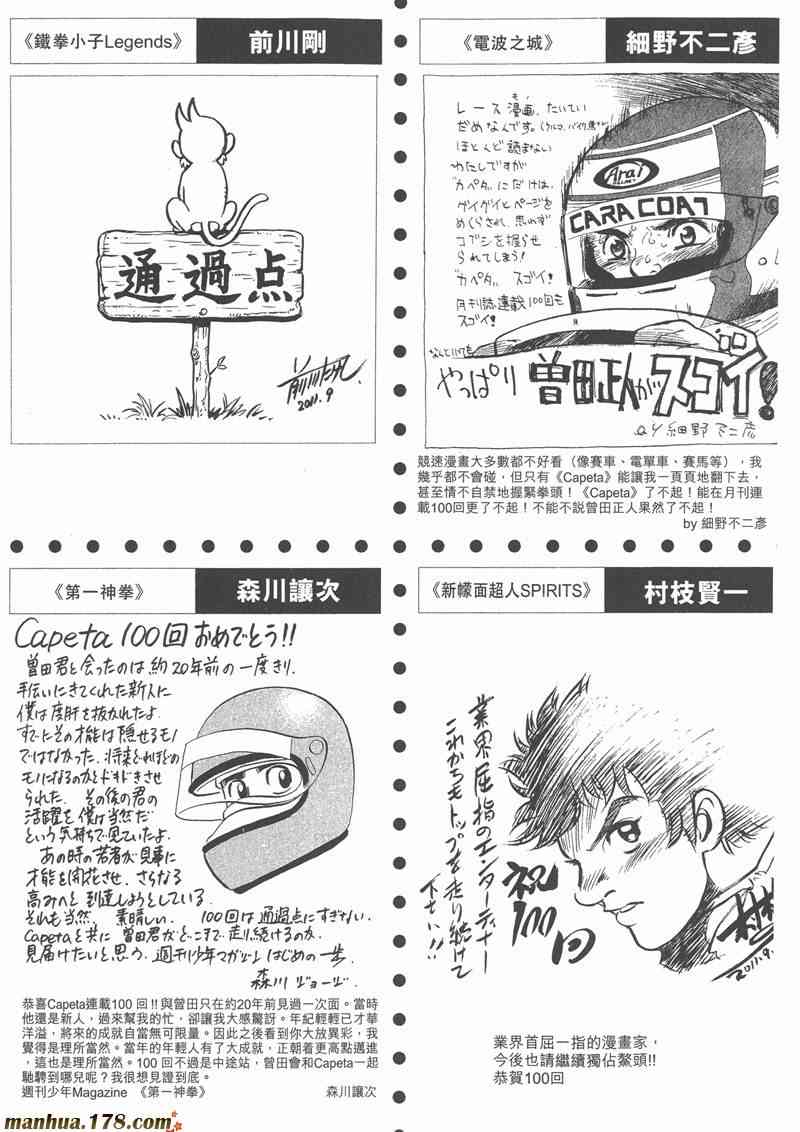 《鐵拳小子Legends》
前川剛
通過点
2011.9
《電波之城》
細野不二彥
レース漫画、たいてい
も
だめなんです。(クルマ、バイク、馬など)
ほとんど読まない
わたしですが
"カペタ"にだけは、
グイグイとページを
めくらされ、思わず
コブシを握らせ
られてしまう!
"カペタ"スゴイ!
月刊誌連載100回も
スゴイ!
なんといっても
やっぱり曽田正人がスゴイ!
by 細野不二彦
Arai
CARA COAT
競速漫畫大多數都不好看（像賽車、電單車、賽馬等），我
幾乎都不會碰，但只有《Capeta》能讓我一頁頁地翻下去，
甚至情不自禁地握緊拳頭！《Capeta》了不起！能在月刊連
載100回更了不起！不能不說曾田正人果然了不起！
by 細野不二彥
《第一神拳》
森川讓次
Capeta 100回おめでとう!!
曽田君と会ったのは約20年前の一度きり.
手伝いにきてくれた新人に
僕は度肝を抜かれたよ.
すでにその才能は隠せるモノ
ではなかった.将来どれほどの
モノになるのかとドキドキさせ
られた.その後の君の
活躍を僕は当然だ
という気持ちで見ていたよ.
あの時の若者が見事に
才能を開花させ、さらなる
高みへと到達しようとしている.
それも当然.素晴しい.100回は通過点にすぎない.
Capetaと共に曽田君がどこまで走り続けるのか.
見届けたいと思う.週刊少年マガジン はじめの一歩
森川ジョージ
恭喜Capeta連載100 回!!與曾田只在約20年前見過一次面。當時
他還是新人，過來幫我的忙，卻讓我大感驚訝。年紀輕輕已才華
洋溢，將來的成就自當無可限量。因此之後看到你大放異彩，我
覺得是理所當然。當年的年輕人有了大成就，正朝着更高點邁進
，這也是理所當然。100 回不過是中途站，曾田會和Capeta一起
馳騁到哪兒呢？我很想見證到底。
週刊少年Magazine 《第一神拳》 森川讓次
《新幪面超人SPIRITS》
村枝賢一
業界屈指のエンターテイナー
これからもトップを走り続けて
下さい!!
祝
100
回
2011.9.
業界首屈一指的漫畫家，
今後也請繼續獨佔鰲頭!!
恭賀100回
manhua.178.com